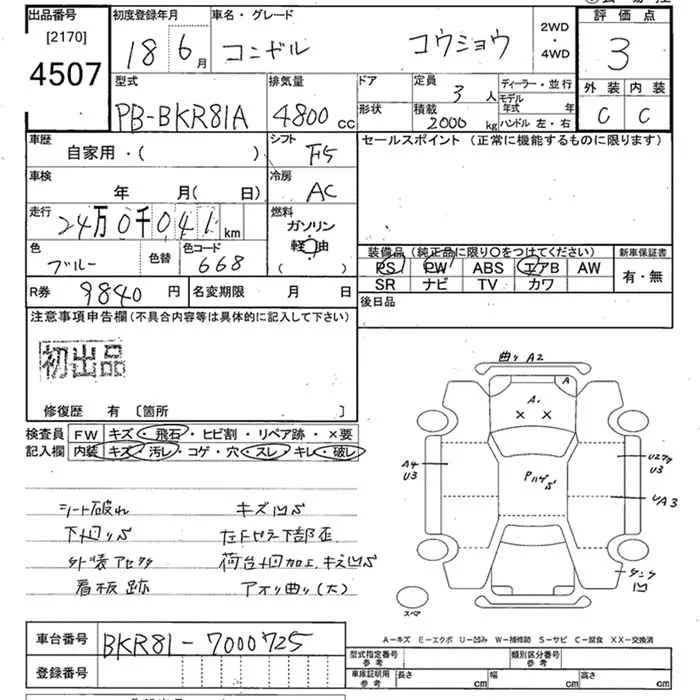 出品番号
[2170]
4507
初度登録年月
18 6月
車名・グレード
コンドル コウショウ
2WD・4WD
評価点
3
外装 内装
C C
型式
PB-BKR81A
排気量
4800cc
ドア
形状
定員
3人
積載
2000kg
ディーラー・並行
モデル年式 年
ハンドル 左・右
車歴
自家用・( )
シフト
F5
セールスポイント (正常に機能するものに限ります)
車検
年 月( 日)
冷房
AC
走行
24万0千041km
燃料
ガソリン
軽油
( )
色
ブルー
色替
色コード
668
装備品 (純正品に限り○をつけてください)
新車保証書
PS PW ABS エアB AW
SR ナビ TV カワ
有・無
R券
9840円
名変期限 月 日
後日品
注意事項申告欄(不具合内容等は具体的に記入して下さい)
初出品
修復歴 有 [箇所 ]
検査員
記入欄
FW キズ・飛石・ヒビ割・リペア跡・×要
内装 キズ・汚レ・コゲ・穴・スレ・キレ・破レ
シート破れ キズ凹ふ
下回りふ
看板跡 アオリ曲り(大)
曲りA2
A
A.
× ×
A4
U3
U3
UA3
凹
スペア
A−キズ E−エクボ U−凹み W−補修跡 S−サビ C−腐食 XX−交換済
車台番号
BKR81-7000725
登録番号
型式指定番号
参考
類別区分番号
参考
車庫証明用
参考
長さ cm 幅 cm 高さ cm